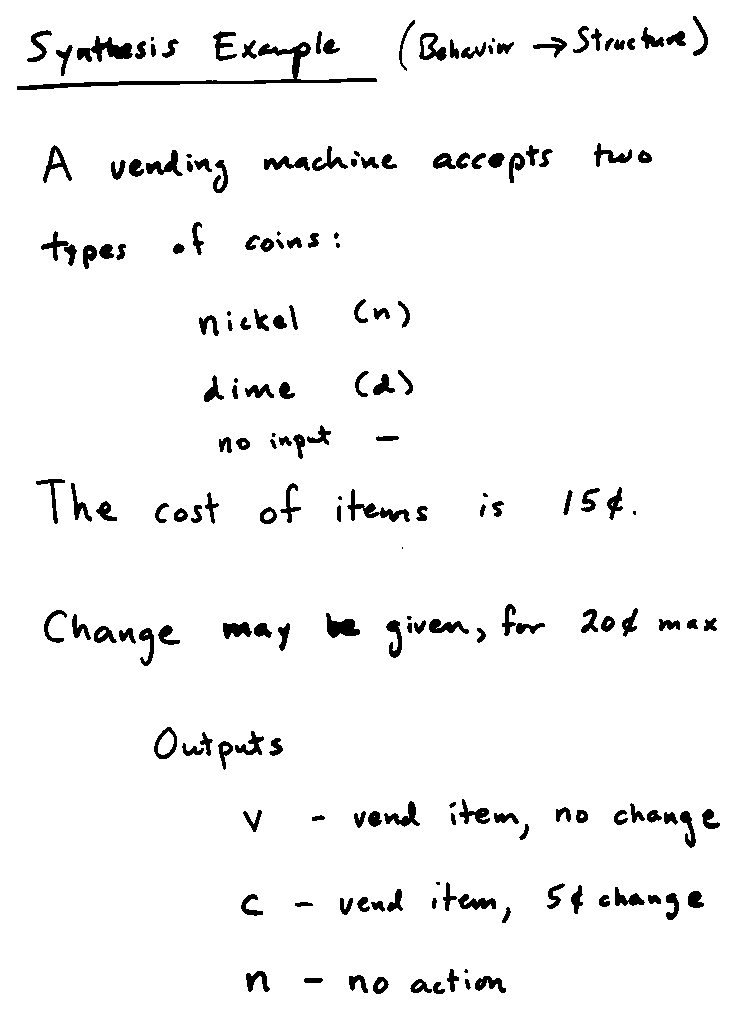 Synthesis Example (Behavior → Structure)
A vending machine accepts two
types of coins:
nickel (n)
dime (d)
no input –
The cost of items is 15¢.
Change may be given, for 20¢ max
Outputs
V – vend item, no change
C – vend item, 5¢ change
n – no action